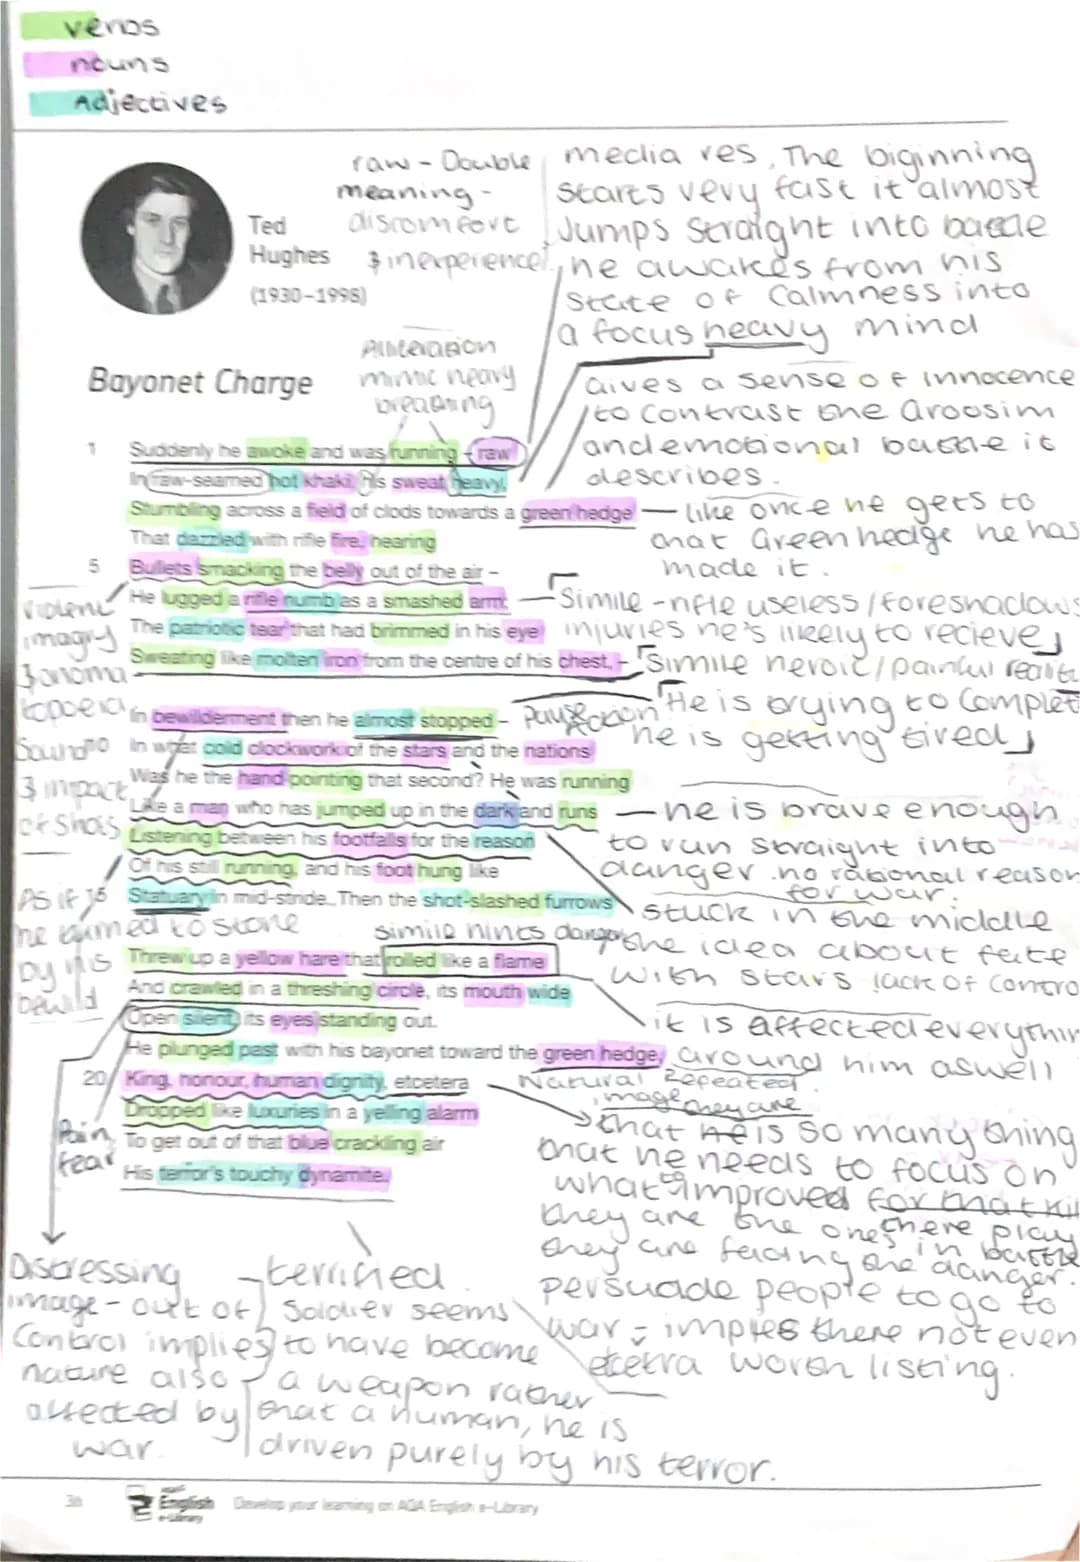 verbs
nouns
Adjectives
raw - Double
meaning -
discomfort
& inexperience
Ted
Hughes
(1930–1998)
media res, The biginning
starts very fast it almost
Jumps straight into battle
he awakes from his
state of calmness into
a focus heavy mind
Alliteration
mimic heavy
breathing
Bayonet Charge
Gives a sense of innocence
to contrast the
and emotional battle it
describes.
1 Suddenly he awoke and was running – raw
In raw-seamed hot khaki, his sweat heavy,
Stumbling across a field of clods towards a green hedge
That dazzled with rifle fire, hearing
5 Bullets smacking the belly out of the air –
He lugged a rifle numb as a smashed arm;
The patriotic tear that had brimmed in his eye
Sweating like molten iron from the centre of his chest, –
— like once he gets to
that Green hedge he has
made it.
violent
imagry
& onoma
topoeia
Sound
& impact
of shots
Simile - rifle useless / foreshadows
injuries he's likely to recieve
Simile heroic / painful
Pause
action
He is trying to Complet
he is getting tired
In bewilderment then he almost stopped –
In what cold clockwork of the stars and the nations
Was he the hand pointing that second? He was running
Like a man who has jumped up in the dark and runs
Listening between his footfalls for the reason
Of his still running, and his foot hung like
15 Statuary in mid-stride. Then the shot-slashed furrows
— he is brave enough
to run straight into
danger. no rational reason
for war.
stuck in the middle
the idea about fate
with stars lack of contro
As if
he turned to stone
by his
bewild
simile hints danger
Threw up a yellow hare that rolled like a flame
And crawled in a threshing circle, its mouth wide
Open silent, its eyes standing out.
He plunged past with his bayonet toward the green hedge,
20 King, honour, human dignity, etcetera
Dropped like luxuries in a yelling alarm
To get out of that blue crackling air
His terror's touchy dynamite.
it is affected everythin
around him aswell
Natural Repeated
image
they are
that he is so many thing
that he needs to focus on
what improved for that
they are the ones there play
they are facing the danger.
in battle
persuade people to go to
war - implies there not even
etcetra worth listing.
Pain,
fear
Distressing
image - out of
control implies
nature also
affected by
war.
terrified.
Soldier seems
to have become
a weapon rather
that a human, he is
driven purely by his terror.
English
Develop your learning on AQA English e-Library